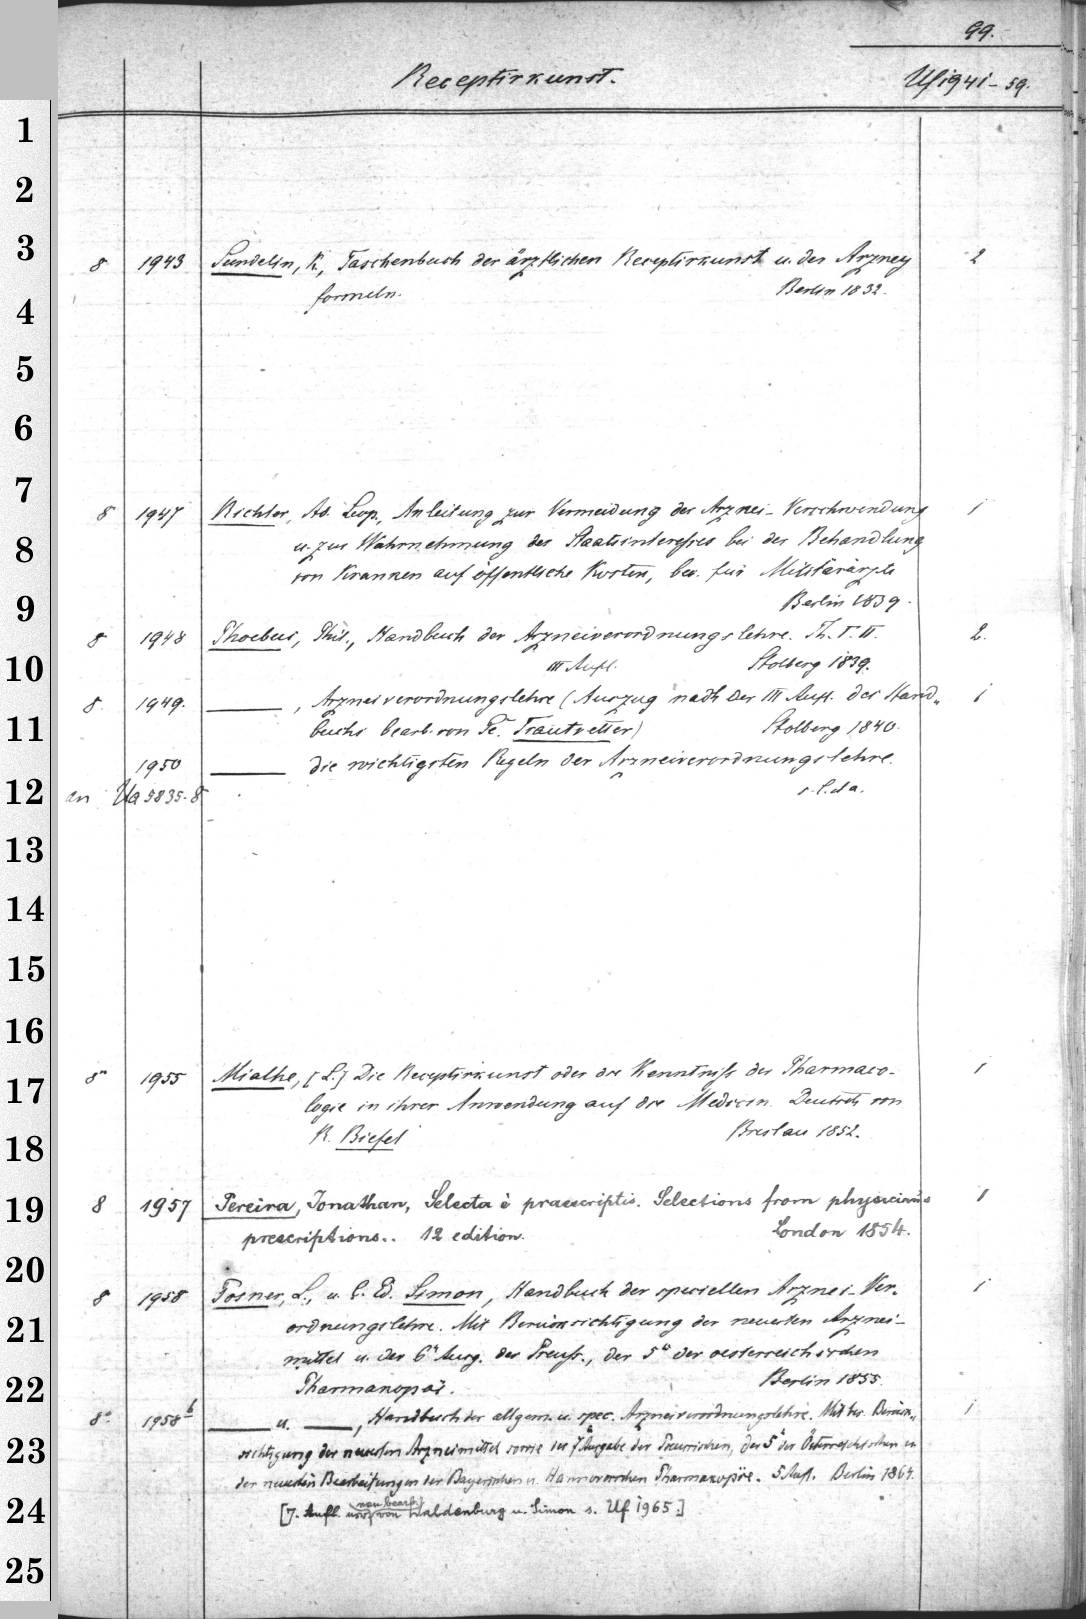 99.
Receptirkunst. Uf 1941-59.
1
2
3
8 1943 Sundelin, K., Taschenbuch der ärztlichen Receptirkunst u. der Arzney 2
formeln. Berlin 1832.
4
5
6
7
8 1947 Richter, Ad. Leop., Anleitung zur Vermeidung der Arznei-Verschwendung 1
8
u. zur Wahrnehmung des Staatsinteresses bei der Behandlung
von Kranken auf öffentliche Kosten, bes. für Militärärzte
9
Berlin 1839.
8 1948 Phoebus, Phil., Handbuch der Arzneiverordnungslehre. Th. I. II. 2.
10
III Aufl. Stolberg 1839.
8. 1949. ———, Arzneiverordnungslehre (Auszug nach der III Aufl. des Hand- 1
11
buchs bearb. von Trautvetter) Stolberg 1840.
1950 ——— die wichtigsten Regeln der Arzneiverordnungslehre.
12
an Ua 5835.8 s.l.d a.
13
14
15
16
17
8° 1955 Mialhe, [L.] Die Receptirkunst oder die Kenntniss der Pharmaco- 1
logie in ihrer Anwendung auf die Medicin. Deutsch von
18
R. Biefel Breslau 1852.
19
8 1957 Pereira, Jonathan, Selecta è praescriptis. Selections from physicians 1
prescriptions.. 12 edition. London 1854.
20
8 1958 Posner, L., u. C. Ed. Simon, Handbuch der speciellen Arznei-Ver- 1
21
ordnungslehre. Mit Berücksichtigung der neuesten Arznei-
mittel u. der 6n Ausg. der Preuß., der 5n der oesterreichischen
22
Pharmakopöe. Berlin 1855.
8° 1958b ——— u. ———, Handbuch der allgem. u. spec. Arzneiverordnungslehre. Mit bes. Berück- 1
23
sichtigung der neuesten Arzneimittel sowie der 7n Ausgabe der Preussischen, der 5n der Österreichischen u
der neuesten Bearbeitungen der Bayerischen u. Hannoverschen Pharmakopöe. 5 Aufl. Berlin 1864.
24
[7. Aufl. neu bearb. von Waldenburg u. Simon s. Uf 1965.]
25